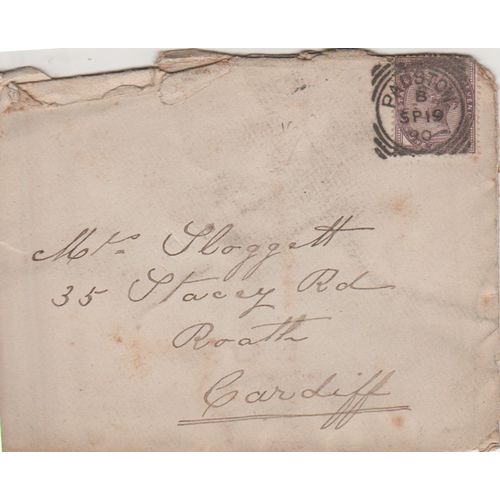 PADSTOW
B
SP 19
90
Mrs Sloggett
35 Stacey Rd
Roath
Cardiff